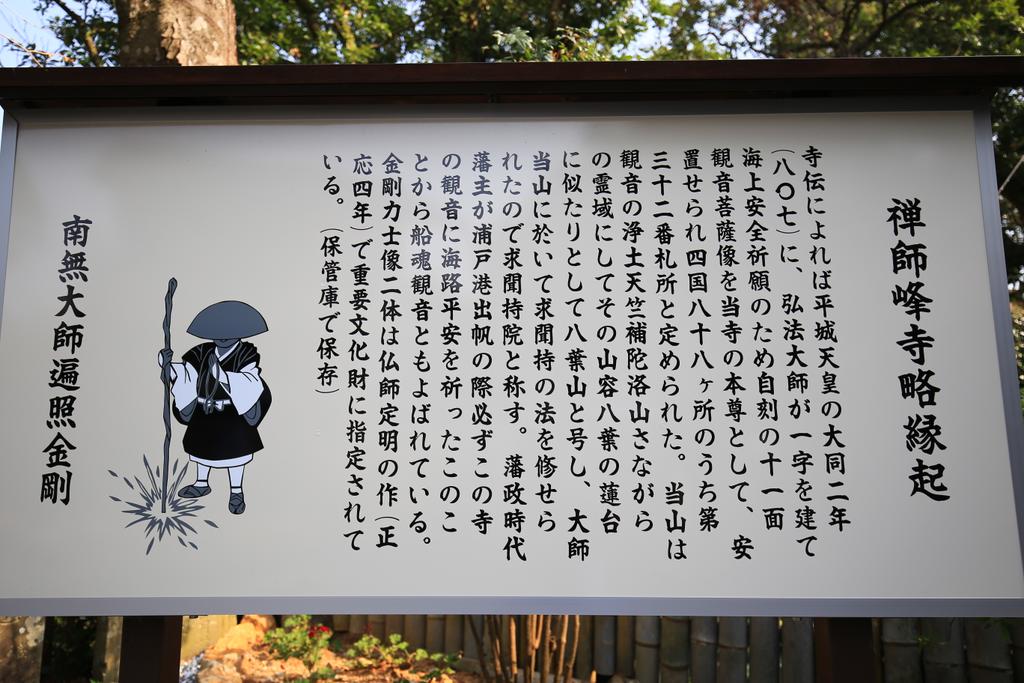 禅師峰寺略縁起
寺伝によれば平城天皇の大同二年
(八〇七)に、弘法大師が一字を建て
海上安全祈願のため自刻の十一面
観音菩薩像を当寺の本尊として、安
置せられ四国八十八ヶ所のうち第
三十二番札所と定められた。当山は
観音の浄土天竺補陀洛山さながら
の霊域にしてその山容八葉の蓮台
に似たりとして八葉山と号し、大師
当山に於いて求聞持の法を修せら
れたので求聞持院と称す。藩政時代
藩主が浦戸港出帆の際必ずこの寺
の観音に海路平安を祈ったこのこ
とから船魂観音ともよばれている。
金剛力士像二体は仏師定明の作(正
応四年)で重要文化財に指定されて
いる。(保管庫で保存)
南無大師遍照金剛